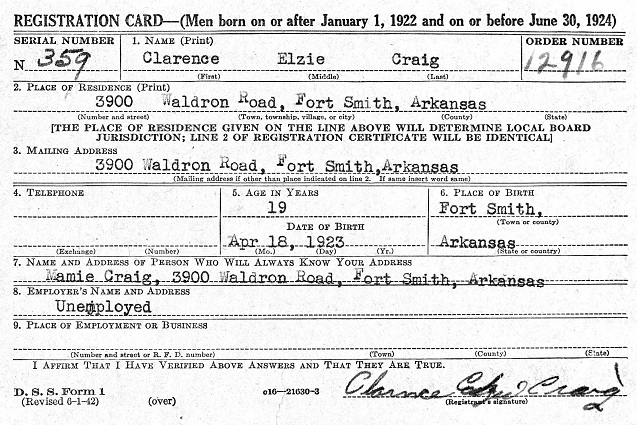 REGISTRATION CARD—(Men born on or after January 1, 1922 and on or before June 30, 1924)
SERIAL NUMBER 1. NAME (Print) ORDER NUMBER
N 359 Clarence Elzie Craig 12916
(First) (Middle) (Last)
2. PLACE OF RESIDENCE (Print)
3900 Waldron Road, Fort Smith, Arkansas
(Number and street) (Town, township, village, or city) (County) (State)
[THE PLACE OF RESIDENCE GIVEN ON THE LINE ABOVE WILL DETERMINE LOCAL BOARD
JURISDICTION; LINE 2 OF REGISTRATION CERTIFICATE WILL BE IDENTICAL]
3. MAILING ADDRESS
3900 Waldron Road, Fort Smith,Arkansas
(Mailing address if other than place indicated on line 2. If same insert word same)
4. TELEPHONE 5. AGE IN YEARS 6. PLACE OF BIRTH
19 Fort Smith,
(Town or county)
DATE OF BIRTH
Apr 18, 1923 Arkansas
(Exchange) (Number) (Mo.) (Day) (Yr.) (State or country)
7. NAME AND ADDRESS OF PERSON WHO WILL ALWAYS KNOW YOUR ADDRESS
Mamie Craig, 3900 Waldron Road, Fort Smith, Arkansas
8. EMPLOYER'S NAME AND ADDRESS
Unemployed
9. PLACE OF EMPLOYMENT OR BUSINESS
(Number and street or R. F. D. number) (Town) (County) (State)
I AFFIRM THAT I HAVE VERIFIED ABOVE ANSWERS AND THAT THEY ARE TRUE.
D. S. S. Form 1
(Revised 6-1-42) (over) c16—21630-3 Clarence Craig
(Registrant's signature)